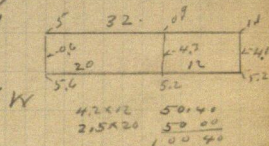 5 32. .09 1.1
.0.6 4.2 4.1
20 12
5.6 5.2 5.2
W
4.2 x 12 50.40
2.5 x 20 50 00
1 00 40